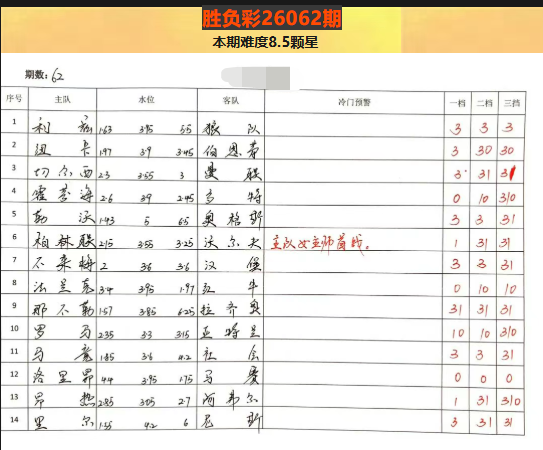 胜负彩26062期
本期难度8.5颗星
期数: 62
序号 主队 水位 客队 冷门预警 一档 二档 三档
1 利兹 1.63 3.95 5.5 狼队 3 3 3
2 纽卡 1.97 3.9 3.45 伯恩茅 3 30 30
3 切尔西 2.3 3.55 3 曼联 3 31 31
4 霍芬海 2.6 3.9 2.45 多特 0 10 310
5 勒沃 1.43 5 6.5 奥格斯 3 3 31
6 柏林联 2.15 3.55 3.25 沃尔夫 主队女主帅首战。 1 31 31
7 不来梅 2 3.6 3.6 汉堡 3 3 31
8 法兰克 3.4 3.95 1.97 红牛 0 10 10
9 那不勒 1.57 3.85 6.25 拉齐奥 31 31 31
10 罗马 2.35 3.3 3.15 亚特兰 10 10 310
11 马竞 1.85 3.6 4.2 社会 3 3 31
12 洛里昂 4.4 3.95 1.75 马赛 0 0 0
13 昂热 2.85 3.05 2.7 阿弗尔 1 31 310
14 里尔 1.55 4.2 6 尼斯 3 31 31